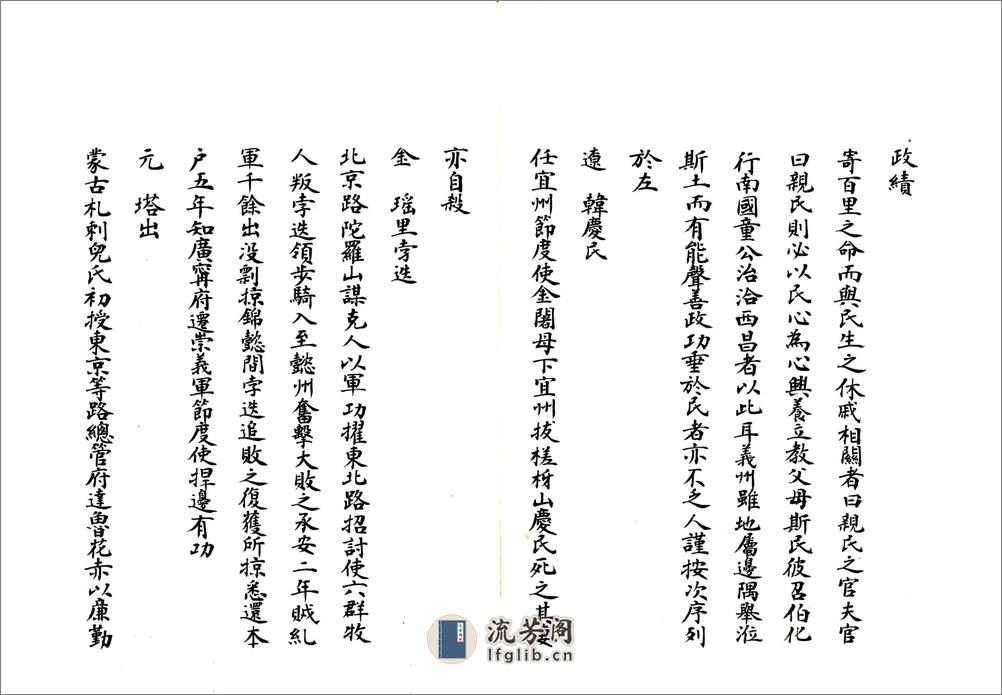 政績
寄百里之命而與民生之休戚相關者曰親民之官夫官
曰親民則必以民心為心興養立教父母斯民彼召伯化
行南國童公治洽西昌者以此耳義州雖地屬邊隅舉涖
斯土而有能聲善政功垂於民者亦不乏人謹按次序列
於左
遼 韓慶民
任宜州節度使金闍母下宜州拔槎枒山慶民死之其妻
亦自殺
金 瑶里孛迭
北京路陀羅山謀克人以軍功擢東北路招討使六群牧
人叛孛迭領步騎入至懿州奮擊大敗之承安二年賊糺
軍千餘出没剽掠錦懿間孛迭追敗之復獲所掠悉還本
户五年知廣甯府遷崇義軍節度使捍邊有功
元 塔出
蒙古札剌兒氏初授東京等路總管府達魯花赤以廉勤
流芳阁
lfglib.cn